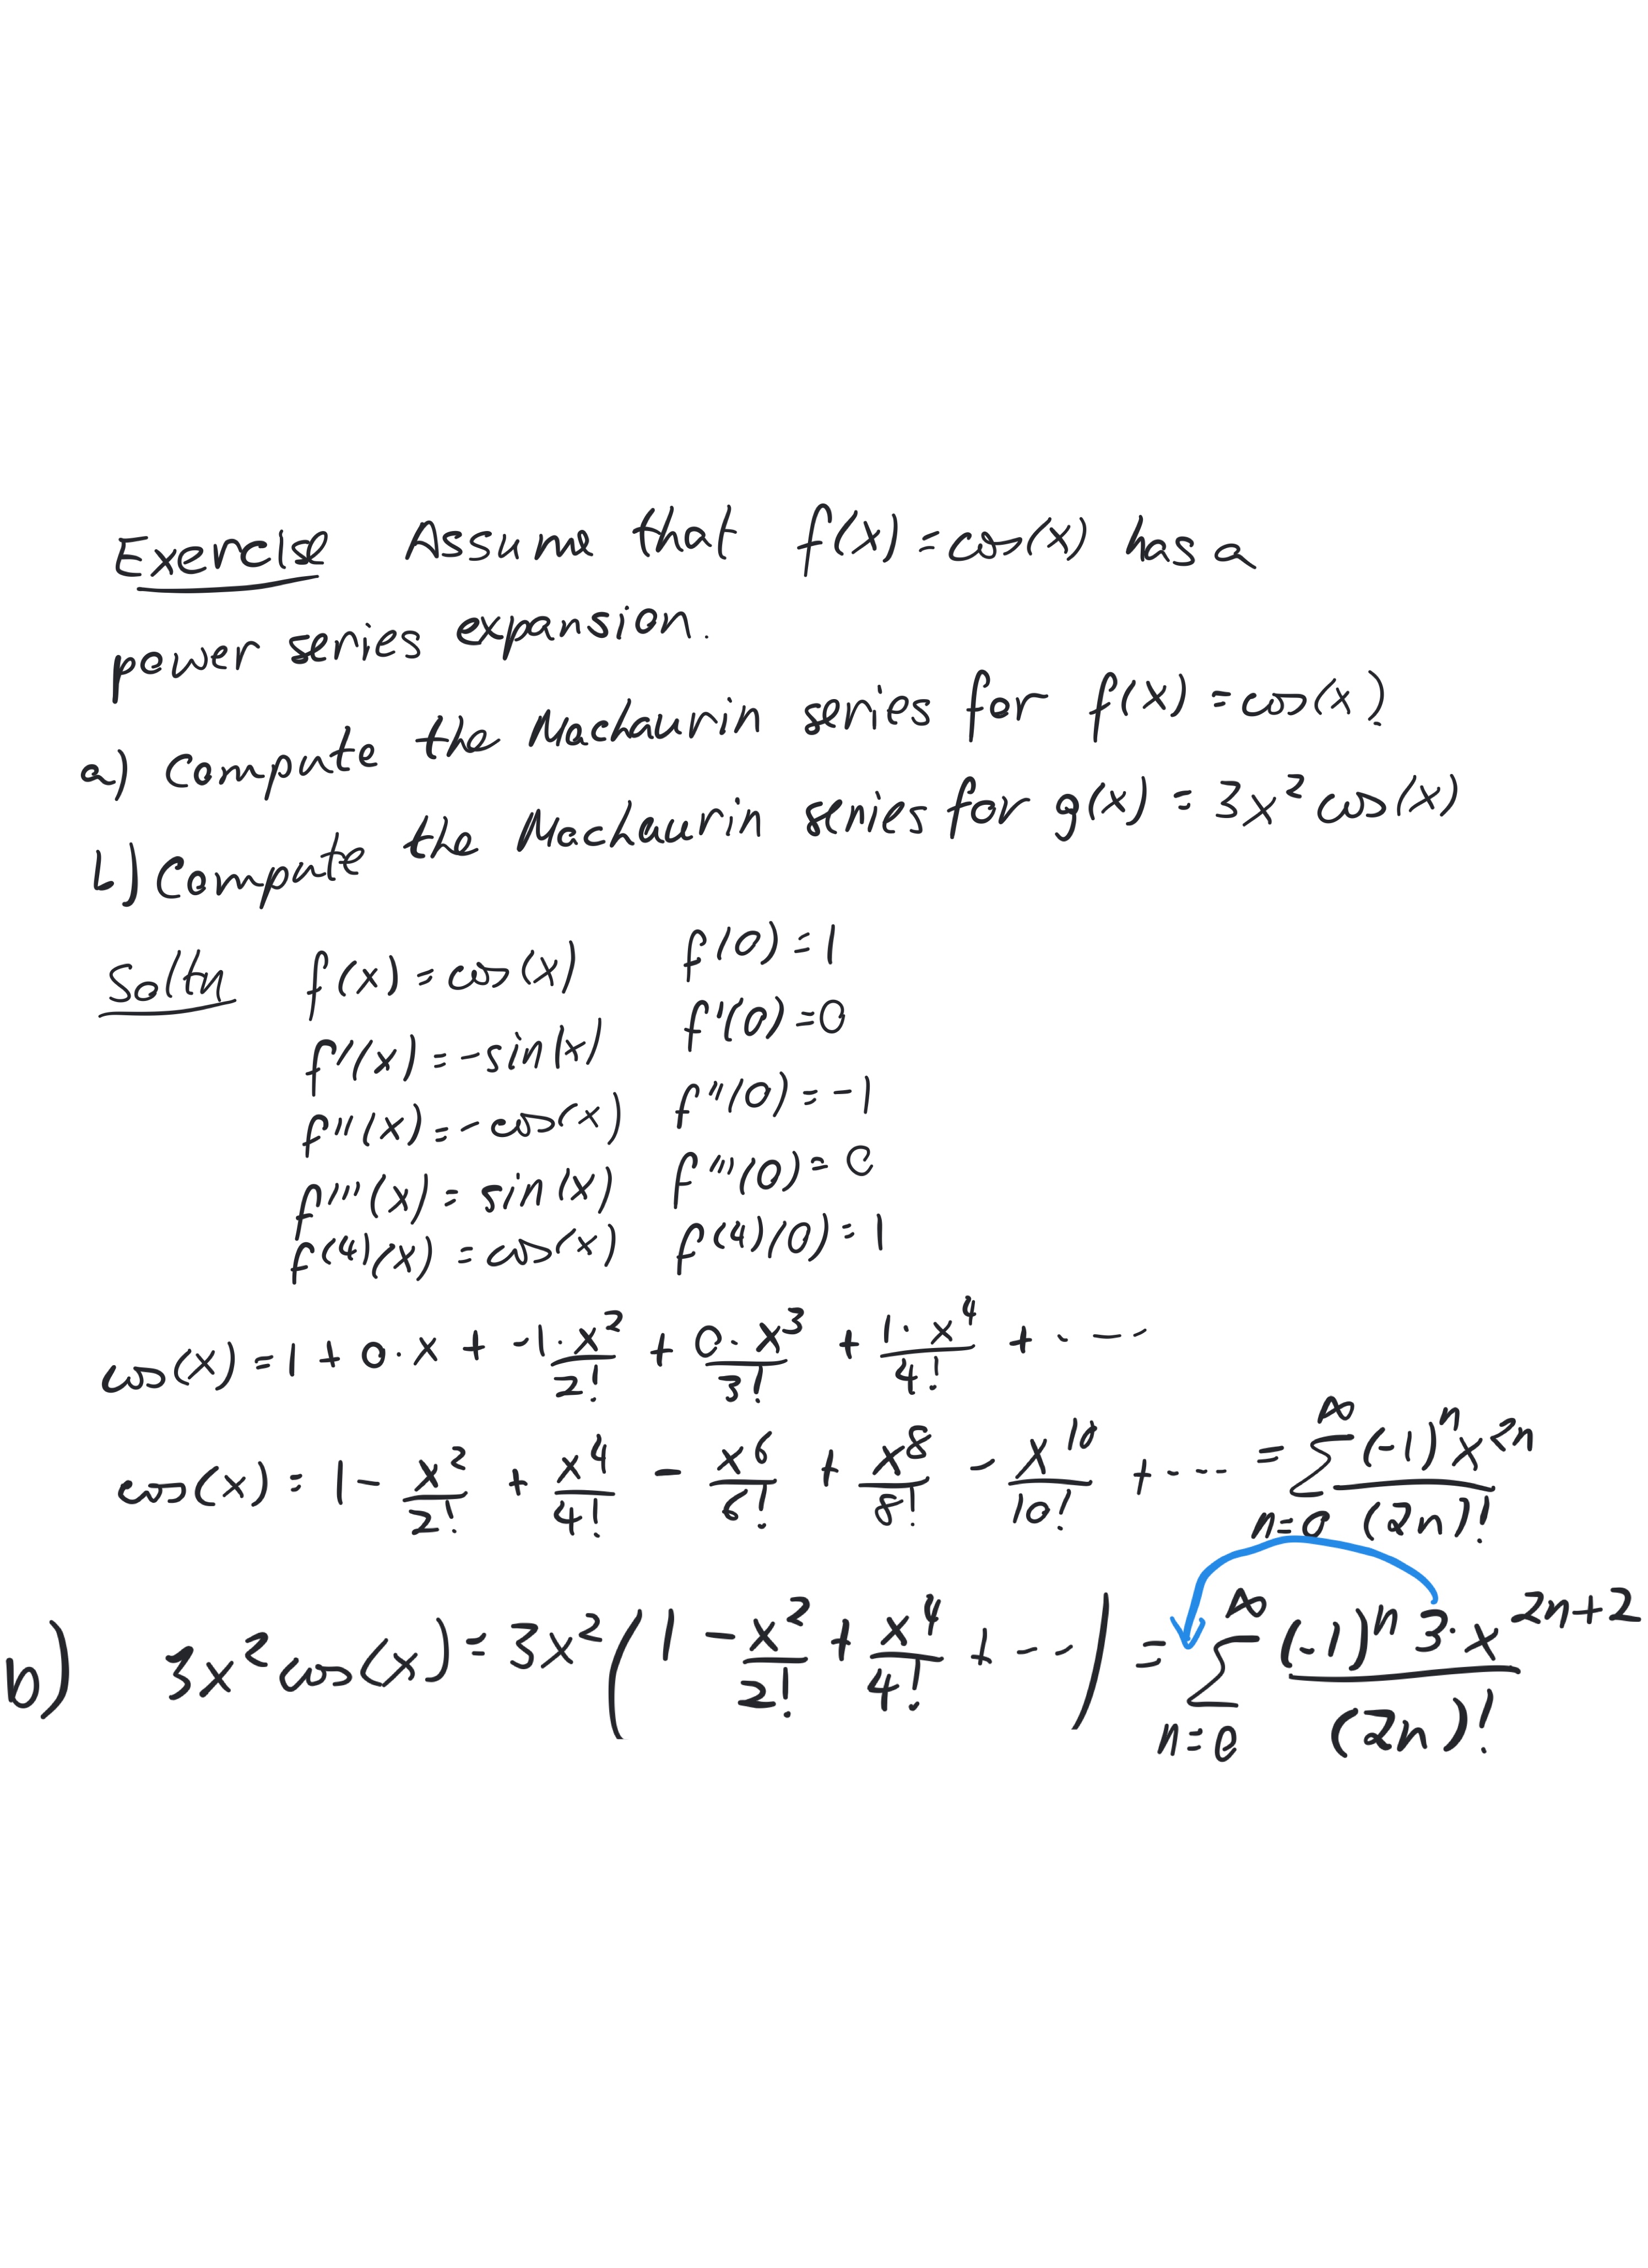 Exercise Assume that f(x) = cos(x) has a
power series expansion.
a) Compute the Maclaurin series for f(x) = cos(x).
b) Compute the Maclaurin series for g(x) = 3x² cos(x)
Soltn f(x) = cos(x) f(0) = 1
f'(x) = -sin(x) f'(0) = 0
f''(x) = -cos(x) f''(0) = -1
f'''(x) = sin(x) f'''(0) = 0
f^(4)(x) = cos(x) f^(4)(0) = 1
cos(x) = 1 + 0·x + -1·x²/2! + 0·x³/3! + 1·x⁴/4! + ----
cos(x) = 1 - x²/2! + x⁴/4! - x⁶/6! + x⁸/8! - x¹⁰/10! + ---- = ∑_{n=0}^{∞} (-1)^n x^{2n}/(2n)!
b) 3x² cos(x) = 3x² (1 - x²/2! + x⁴/4! + ---) = ∑_{n=0}^{∞} (-1)^n 3·x^{2n+2}/(2n)!